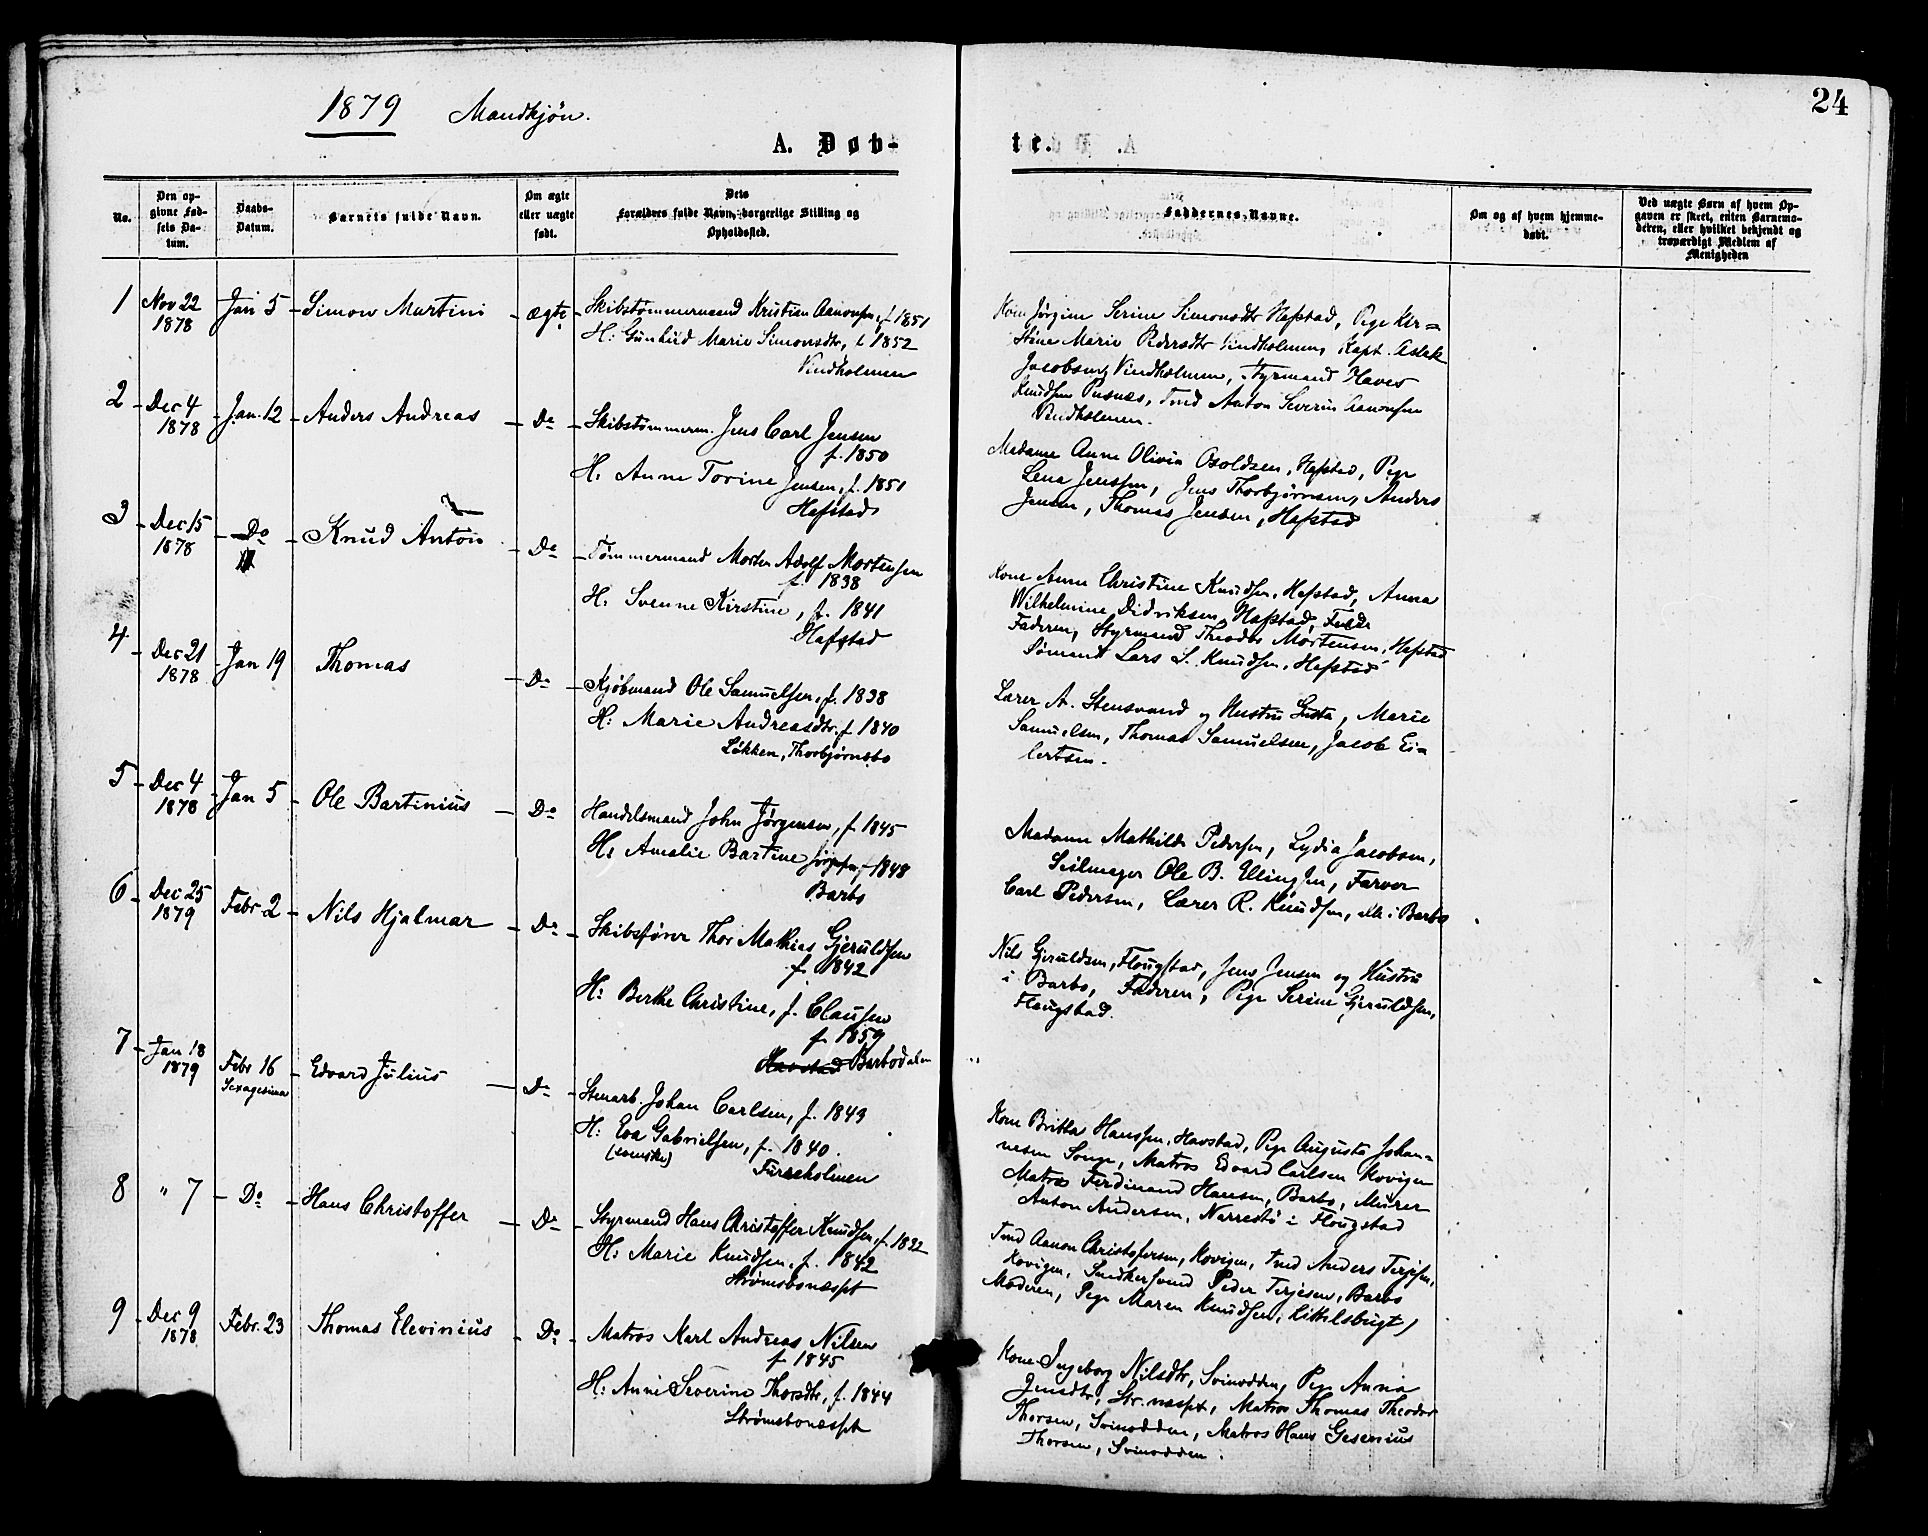 24
1879 Mandkjøn.
A. Døb-
te.
No.
Den op-
givne Fød-
sels Da-
tum.
Daabs-
Datum.
Barnets fulde Navn.
Om ægte
eller uægte
født.
Dets
Forældres fulde Navn, borgerlige Stilling og
Opholdssted.
Faddernes Navne.
Om og af hvem hjemme-
døbt.
Ved uægte Børn af hvem Op-
gaven er skeet, enten Barnemo-
deren, eller hvilket bekjendt og
troværdigt Medlem af
Menigheden
1
Nov 22
1878
Jan 5
Simon Martini
ægte
Skibstømmermand Kristian Aanonsen, f 1851
H: Gunhild Marie Simonsdtr, f. 1852
Vindholmen
Kone Jørgine Serine Simonsdtr Hafstad, Pige Kir=
stine Marie Pedersdtr Vindholmen, Kapt. Aslak
Jacobsen, Vindholmen, Styrmand
Knudsen Pusnes, Tmd Anton Severin Aanonsen
Vindholmen.
2
Dec 4
1878
Jan. 12
Anders Andreas
Do
Skibstømmerm. Jens Carl Jensen
f. 1850
H: Anne Torine Jensen, f. 1851
Hafstad
Madame Anne Olivia Osoldsen, Hafstad, Pige
Lena Jenssen, Jens Thorbjørnsen, Anders
Jensen, Thomas Jensen, Hafstad
3
Dec 15
1878
Do
Knud Anton
Do
Tømmermand Morten Adolf Mortensen
f. 1838
H: Svenne Kirstine, f. 1841
Hafstad
Kone Anne Christine Knudsen, Hafstad, Anna
Wilhelmine Didriksen, Hafstad,
Faderen, Styrmand Theodor Mortensen, Hafstad
Sømand Lars L. Knudsen, Hafstad
4
Dec 21
1878
Jan 19
Thomas
Do
Kjøbmand Ole Samuelsen, f. 1838
H: Marie Andreasdtr. f 1840
Løkken, Thorbjørnsbo
Lærer A. Stensvand og Hustru Gusta, Marie
Samuelsen, Thomas Samuelsen, Jacob Ei=
lertsen.
5
Dec 4
1878
Jan 5
Ole Bartinius
Do
Handelsmand John Jørgensen, f. 1845
H: Amalie Bartine Jørgensen, f 1848
Barbo
Madame Mathilde Pedersen, Lydia Jacobsen,
Seilmager Ole B. Ellingsen, Farver
Carl Pedersen, Lærer R. Knudsen, alle i Barbo
6
Dec 25
1879
Febr. 2
Nils Hjalmar
Do
Skibsfører Thor Mathias Gjeruldsen
f. 1842
H: Berthe Christine, f. Clausen
f. 1859
Havstad Barbodalen
Nils Gjeruldsen, Flougstad, Jens Jensen og Hustru
i Barbo, Faderen, Pige Serine Gjeruldsen,
Flougstad.
7
Jan 18
1879
Febr 16
Sexagesima
Edvard Julius
Do
Stenarb. Johan Carlsen, f. 1849
H: Eva Gabrielsen, f. 1840.
(svenske)
Furreholmen
Kone Britta Hanssen, Havstad, Pige Augusta Johan=
nesen Songe, Matros Edvard Carlsen Kovigen
Matros Ferdinand Hansen, Barbo, Murer
Anton Andersen, Narrestø i Flougstad
8
" 7
Do
Hans Christoffer
Do
Styrmand Hans Christoffer Knudsen, f. 1832
H: Marie Knudsen, f. 1842
Strømsbonæsset
Tmd Aanon Christofersen, Kovigen, Tmd Anders Terjesen,
Kovigen, Snedkersvend Peder Terjesen, Barbo
Moderen, Pige Maren Knudsen, Kittelsbugt)
9
Dec 9
1878
Febr. 23
Thomas Elevinius
Do
Matros Karl Andreas Nilsen
f 1845
H: Anne Severine Thorsdtr, f. 1844
Strømsbonæsset
Kone Ingeborg Nilsdtr, Svinodden, Pige Anna
Jensdtr, Str.næsset, Matros Thomas Theodor
Thorsen, Svinodden, Matros Hans Gesenius
Thorsen, Svinodden.